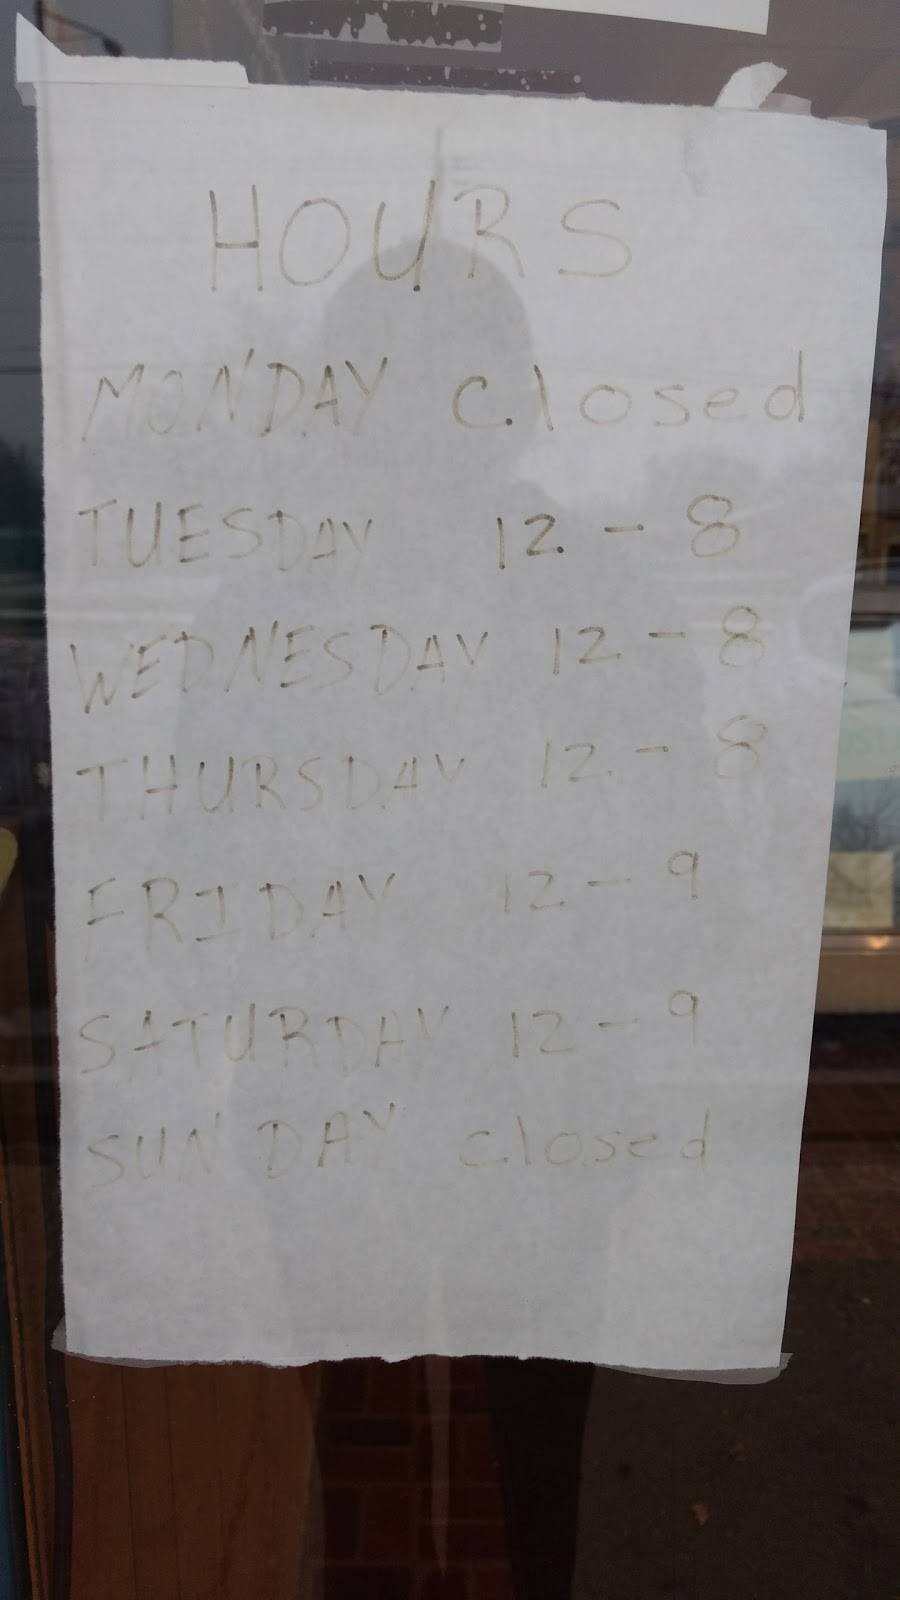 HOURS
MONDAY closed
TUESDAY 12 - 8
WEDNESDAY 12 - 8
THURSDAY 12 - 8
FRIDAY 12 - 9
SATURDAY 12 - 9
SUNDAY closed